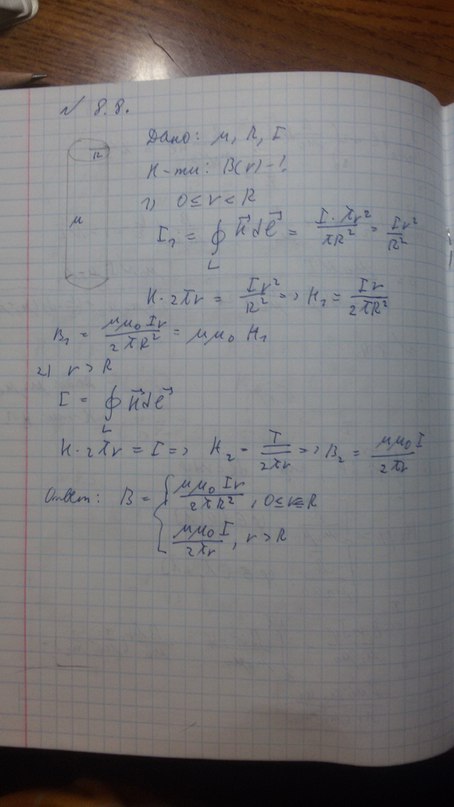 № 8.8.
R
μ
Дано: μ, R, I
Н-ти: B(r)-?
1) 0 ≤ r < R
I₁ = ∮_L H⃗ dℓ⃗ = I·πr²/πR² = Ir²/R²
H·2πr = Ir²/R² => H₁ = Ir/2πR²
B₁ = μμ₀Ir/2πR² = μμ₀ H₁
2) r > R
I = ∮_L H⃗ dℓ⃗
H·2πr = I => H₂ = I/2πr => B₂ = μμ₀I/2πr
Ответ: B = { μμ₀Ir/2πR², 0≤r≤R
μμ₀I/2πr, r > R